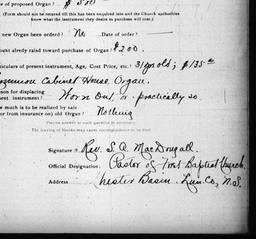 of proposed Organ? $500
(Form should not be returned till this has been enquired into and the Church authorities
know what the instrument they desire to purchase will cost.)
new Organ been ordered? No Date of order?
ount already raised toward purchase of Organ? $200.
ticulars of present instrument, Age, Cost Price, etc.? 31 yrs old; $135
Common Cabinet House Organ.
son for displacing
sent instrument? Worn Out, or practically so
much is to be realized by sale
for from insurance) on old Organ? Nothing
Precise answers to each question is
The leaving of blanks may cause correspondence to be
Signature Rev. S. A. MacDougall.
Official Designation: Pastor of Baptist Church
Address Chester Basin. Lun. Co., N.S.